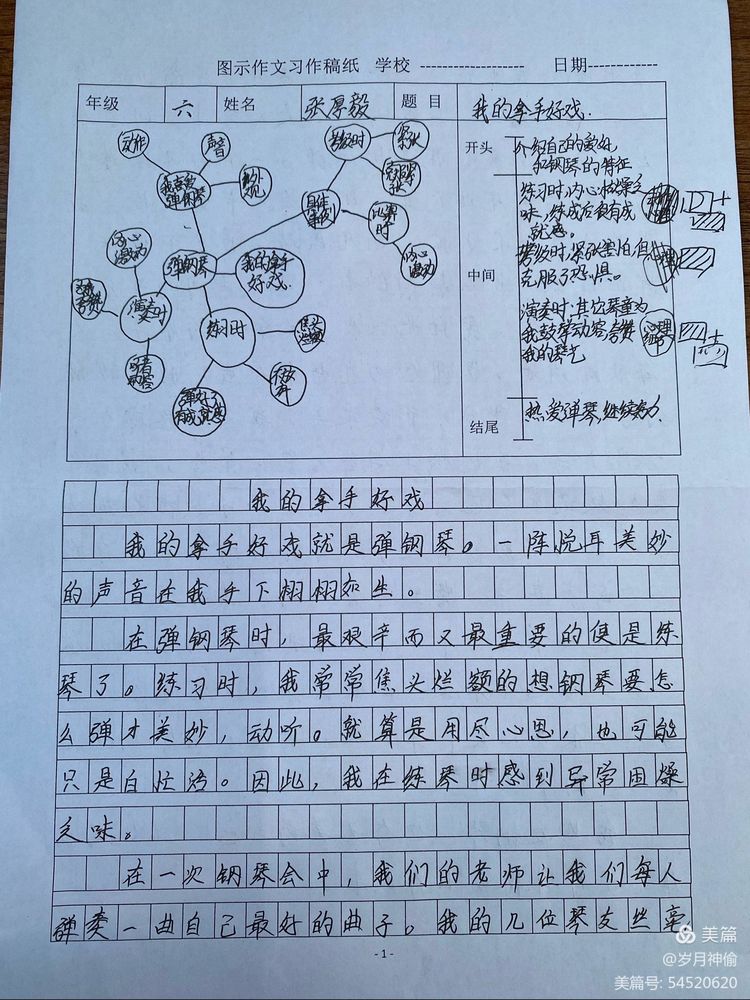 图示作文习作稿纸 学校 ------------------- 日期-------------
年级 六 姓名 张厚毅 题目 我的拿手好戏.
动作
声音
外观
我喜爱弹钢琴
考级时
紧张
克服紧张
具体事例
比赛时
内心激动
弹钢琴
我的拿手好戏.
内心激动
演奏时
练习时
弹好了有成就感
开头
介绍自己的爱好
和钢琴的特征
中间
练习时,内心枯燥乏
味,练成后很有成
就感。
考级时,紧张害怕,但
克服了恐惧。
演奏时:其它琴童为
我鼓掌动容,夸赞
我的琴艺
结尾
热爱弹琴,继续努力.
我的拿手好戏
我的拿手好戏就是弹钢琴。一阵悦耳美妙
的声音在我手下栩栩如生。
在弹钢琴时,最艰辛而又最重要的便是练
琴了。练习时,我常常焦头烂额的想钢琴要怎
么弹才美妙,动听。就算是用尽心思,也可能
只是白忙活。因此,我在练琴时感到异常困燥
乏味。
在一次钢琴会中,我们的老师让我们每人
弹奏一曲自己最好的曲子。我的几位琴友丝毫
- 1 -
美篇
@岁月神偷
美篇号: 54520620